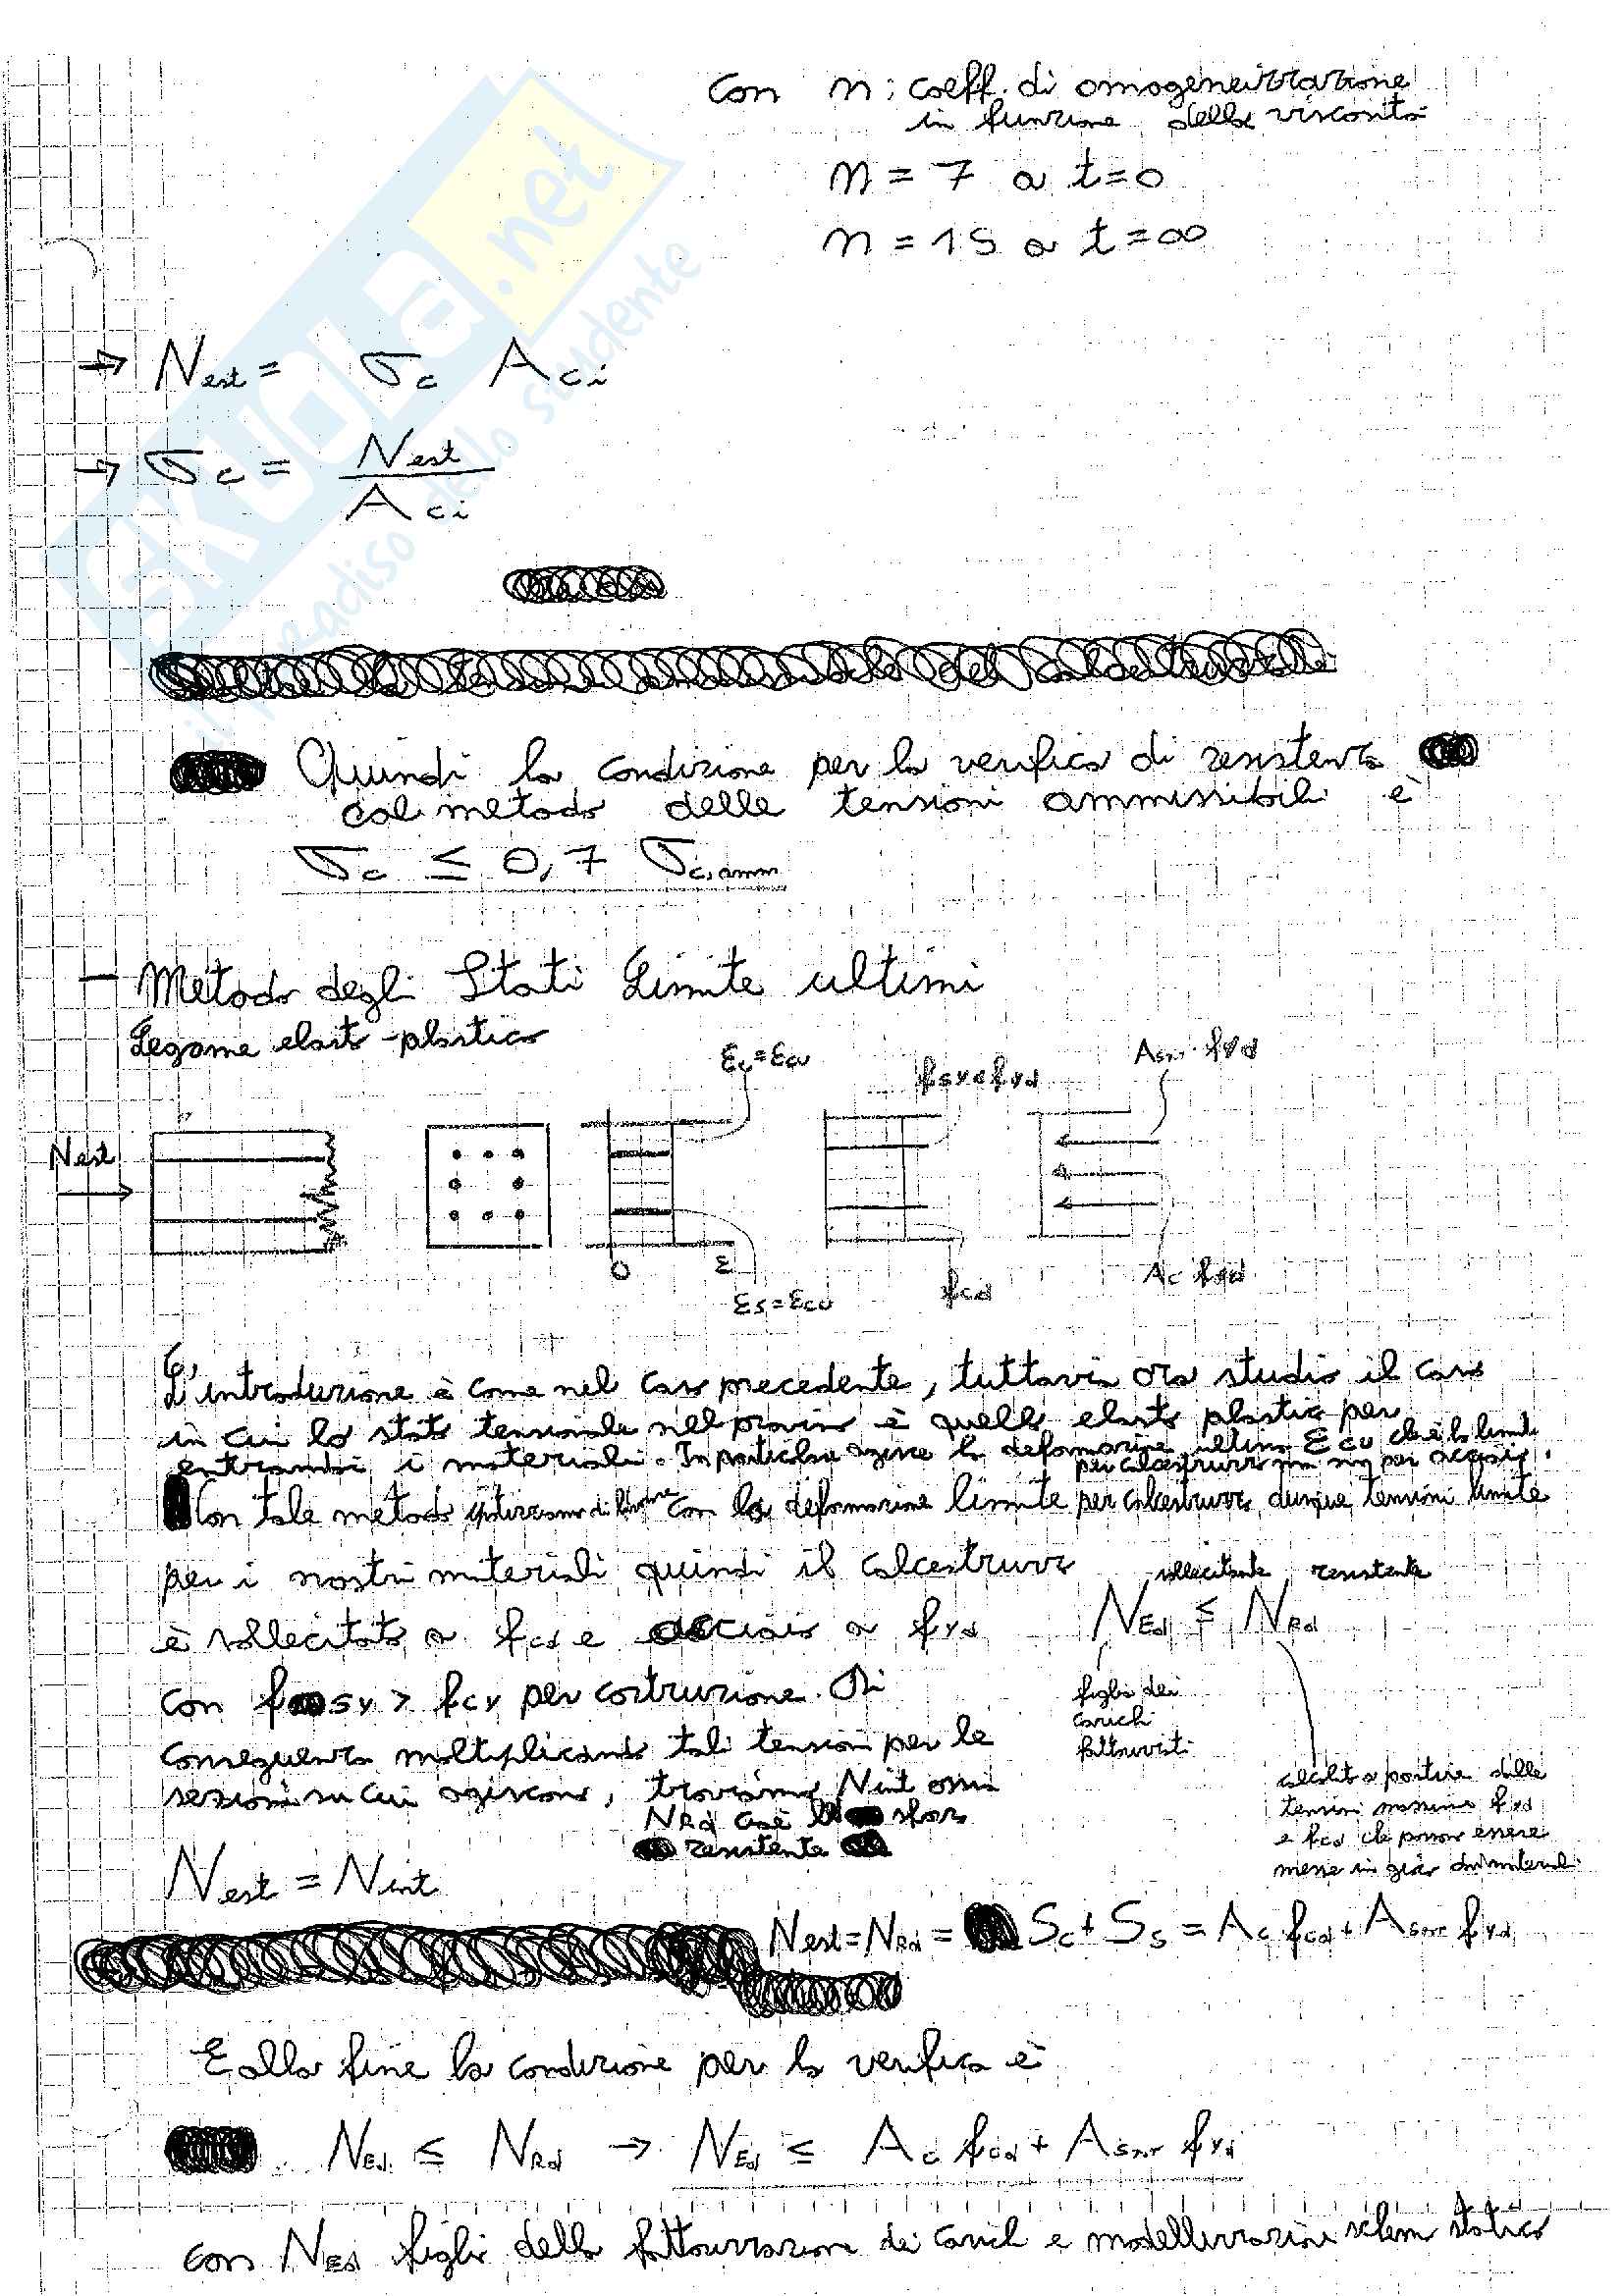 Con n: coeff. di omogeneizzazione
in funzione della viscosità
n = 7 a t=0
n = 15 a t=∞
SKUOLA.net
il paradiso dello studente
→ Nest = σc Aci
→ σc = Nest / Aci
Quindi la condizione per la verifica di resistenza
col metodo delle tensioni ammissibili è
σc ≤ 0,7 σc,amm
- Metodo degli Stati Limite ultimi
Legame elasto-plastico
εc=εcu
fsy=fyd
Asnr·fyd
Nest
0
ε
εs=εcu
fcd
Ac fcd
L'introduzione è come nel caso precedente, tuttavia ora studio il caso
in cui lo stato tensionale nel provino è quello elasto plastico per
entrambi i materiali. In particolare agisce la deformazione ultima εcu che è la limite
per calcestruzzo ma non per acciaio.
Con tale metodo ipotizziamo di lavorare con la deformazione limite per calcestruzzo dunque tensioni limite
per i nostri materiali quindi il calcestruzzo
è sollecitato a fcd e acciaio a fyd
con fsy > fcy per costruzione. Di
conseguenza moltiplicando tali tensioni per le
sezioni su cui agiscono, troviamo Nint ossia
NRd cioè lo sforzo
resistente
sollecitante resistente
NEd ≤ NRd
figlio dei
carichi
fattorizzati
calcolato a partire dalle
tensioni massime fyd
e fcd che possono essere
messe in gioco dai materiali
Nest = Nint
Nest = NRd = Sc + Ss = Ac fcd + Asnr fyd
E alla fine la condizione per la verifica è
NEd ≤ NRd → NEd ≤ Ac fcd + Asnr fyd
con NEd figlio della fattorizzazione dei carichi e modellizzazione schema statico